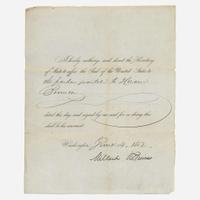 I hereby authorize and direct the Secretary
of State to affix the Seal of the United States to
the pardon granted to Hiram
dated this day and signed by me and for so doing this
shall be his warrant.
Washington, June 14, 1852.
Millard Fillmore